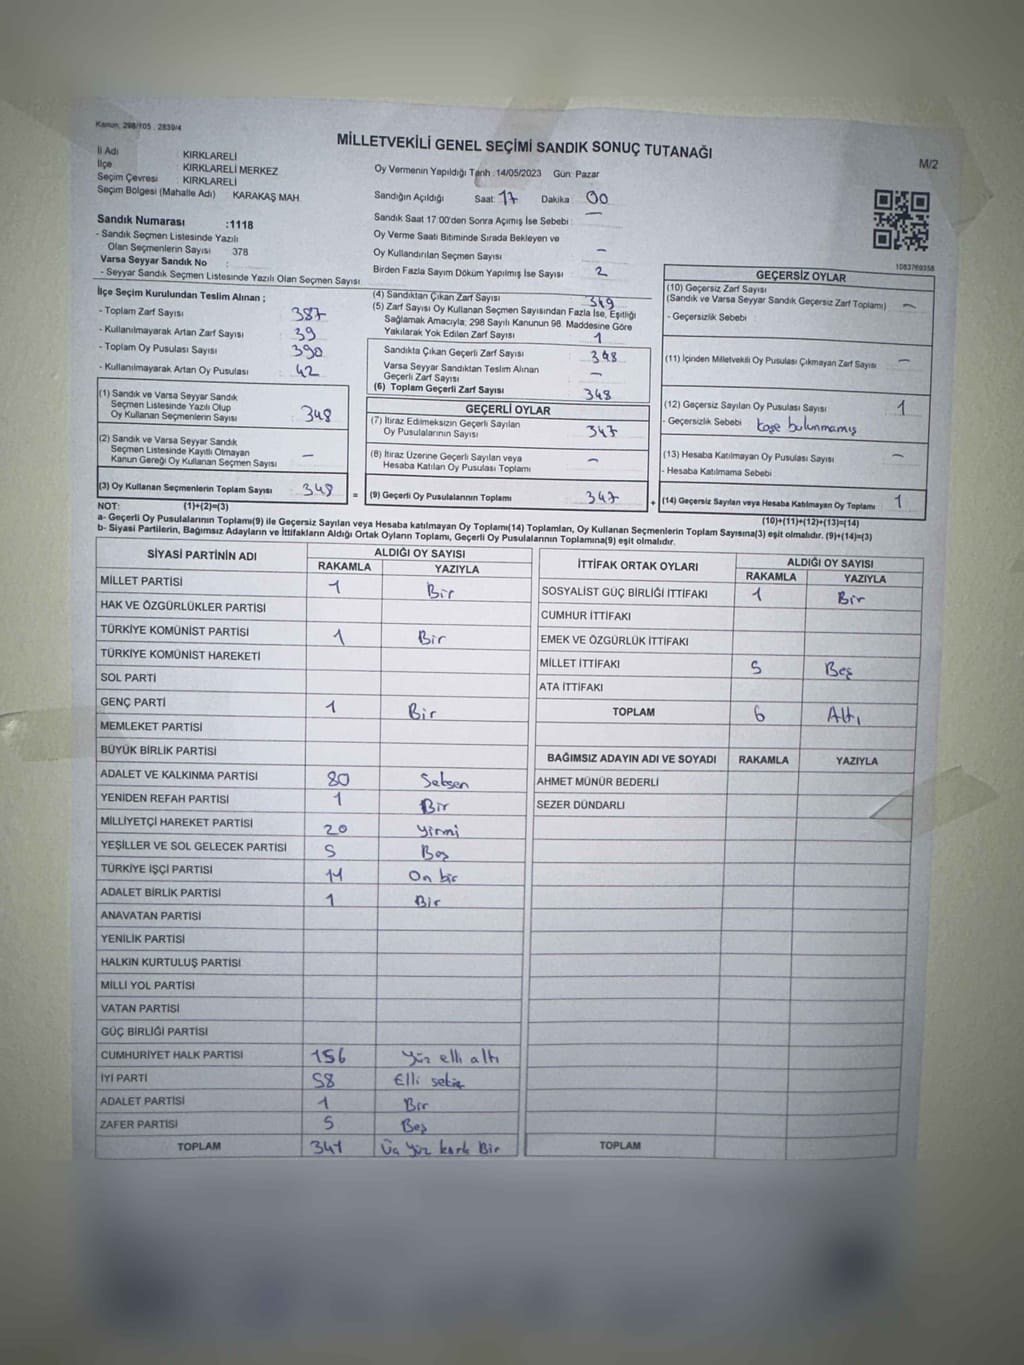 Kanun: 298/105 , 2839/4
MİLLETVEKİLİ GENEL SEÇİMİ SANDIK SONUÇ TUTANAĞI
M/2
İl Adı KIRKLARELİ
İlçe KIRKLARELİ MERKEZ
Seçim Çevresi KIRKLARELİ
Seçim Bölgesi (Mahalle Adı) KARAKAŞ MAH.
Sandık Numarası :1118
- Sandık Seçmen Listesinde Yazılı
Olan Seçmenlerin Sayısı 378
Varsa Seyyar Sandık No :
- Seyyar Sandık Seçmen Listesinde Yazılı Olan Seçmen Sayısı
Oy Vermenin Yapıldığı Tarih :14/05/2023 Gün: Pazar
Sandığın Açıldığı Saat: 17 Dakika 00
Sandık Saat 17:00'den Sonra Açımış İse Sebebi : —
Oy Verme Saati Bitiminde Sırada Bekleyen ve
Oy Kullandırılan Seçmen Sayısı —
Birden Fazla Sayım Döküm Yapılmış İse Sayısı 2
1083769358
İlçe Seçim Kurulundan Teslim Alınan ;
- Toplam Zarf Sayısı 387
- Kullanılmayarak Artan Zarf Sayısı 39
- Toplam Oy Pusulası Sayısı 390
- Kullanılmayarak Artan Oy Pusulası 42
(1) Sandık ve Varsa Seyyar Sandık
Seçmen Listesinde Yazılı Olup
Oy Kullanan Seçmenlerin Sayısı 348
(2) Sandık ve Varsa Seyyar Sandık
Seçmen Listesinde Kayıtlı Olmayan
Kanun Gereği Oy Kullanan Seçmen Sayısı —
(3) Oy Kullanan Seçmenlerin Toplam Sayısı 348
(4) Sandıktan Çıkan Zarf Sayısı 349
(5) Zarf Sayısı Oy Kullanan Seçmen Sayısından Fazla İse, Eşitliği
Sağlamak Amacıyla, 298 Sayılı Kanunun 98. Maddesine Göre
Yakılarak Yok Edilen Zarf Sayısı 1
Sandıkta Çıkan Geçerli Zarf Sayısı 348
Varsa Seyyar Sandıktan Teslim Alınan
Geçerli Zarf Sayısı —
(6) Toplam Geçerli Zarf Sayısı 348
GEÇERLİ OYLAR
(7) İtiraz Edilmeksizin Geçerli Sayılan
Oy Pusulalarının Sayısı 347
(8) İtiraz Üzerine Geçerli Sayılan veya
Hesaba Katılan Oy Pusulası Toplamı —
= (9) Geçerli Oy Pusulalarının Toplamı 347
GEÇERSİZ OYLAR
(10) Geçersiz Zarf Sayısı
(Sandık ve Varsa Seyyar Sandık Geçersiz Zarf Toplamı) —
- Geçersizlik Sebebi :
(11) İçinden Milletvekili Oy Pusulası Çıkmayan Zarf Sayısı —
(12) Geçersiz Sayılan Oy Pusulası Sayısı 1
- Geçersizlik Sebebi kaşe bulunmamış
(13) Hesaba Katılmayan Oy Pusulası Sayısı —
- Hesaba Katılmama Sebebi
+ (14) Geçersiz Sayılan veya Hesaba Katılmayan Oy Toplamı 1
NOT: (1)+(2)=(3)
(10)+(11)+(12)+(13)=(14)
a- Geçerli Oy Pusulalarının Toplamı(9) ile Geçersiz Sayılan veya Hesaba katılmayan Oy Toplamı(14) Toplamları, Oy Kullanan Seçmenlerin Toplam Sayısına(3) eşit olmalıdır. (9)+(14)=(3)
b- Siyasi Partilerin, Bağımsız Adayların ve İttifakların Aldığı Ortak Oyların Toplamı, Geçerli Oy Pusulalarının Toplamına(9) eşit olmalıdır.
SİYASİ PARTİNİN ADI ALDIĞI OY SAYISI
RAKAMLA YAZIYLA
MİLLET PARTİSİ 1 Bir
HAK VE ÖZGÜRLÜKLER PARTİSİ
TÜRKİYE KOMÜNİST PARTİSİ 1 Bir
TÜRKİYE KOMÜNİST HAREKETİ
SOL PARTİ
GENÇ PARTİ 1 Bir
MEMLEKET PARTİSİ
BÜYÜK BİRLİK PARTİSİ
ADALET VE KALKINMA PARTİSİ 80 Seksen
YENİDEN REFAH PARTİSİ 1 Bir
MİLLİYETÇİ HAREKET PARTİSİ 20 yirmi
YEŞİLLER VE SOL GELECEK PARTİSİ 5 Beş
TÜRKİYE İŞÇİ PARTİSİ 11 On bir
ADALET BİRLİK PARTİSİ 1 Bir
ANAVATAN PARTİSİ
YENİLİK PARTİSİ
HALKIN KURTULUŞ PARTİSİ
MİLLİ YOL PARTİSİ
VATAN PARTİSİ
GÜÇ BİRLİĞİ PARTİSİ
CUMHURİYET HALK PARTİSİ 156 Yüz elli altı
İYİ PARTİ 58 Elli sekiz
ADALET PARTİSİ 1 Bir
ZAFER PARTİSİ 5 Beş
TOPLAM 341 Üç yüz kırk Bir
İTTİFAK ORTAK OYLARI ALDIĞI OY SAYISI
RAKAMLA YAZIYLA
SOSYALİST GÜÇ BİRLİĞİ İTTİFAKI 1 Bir
CUMHUR İTTİFAKI
EMEK VE ÖZGÜRLÜK İTTİFAKI
MİLLET İTTİFAKI 5 Beş
ATA İTTİFAKI
TOPLAM 6 Altı
BAĞIMSIZ ADAYIN ADI VE SOYADI RAKAMLA YAZIYLA
AHMET MÜNÜR BEDERLİ
SEZER DÜNDARLI
TOPLAM